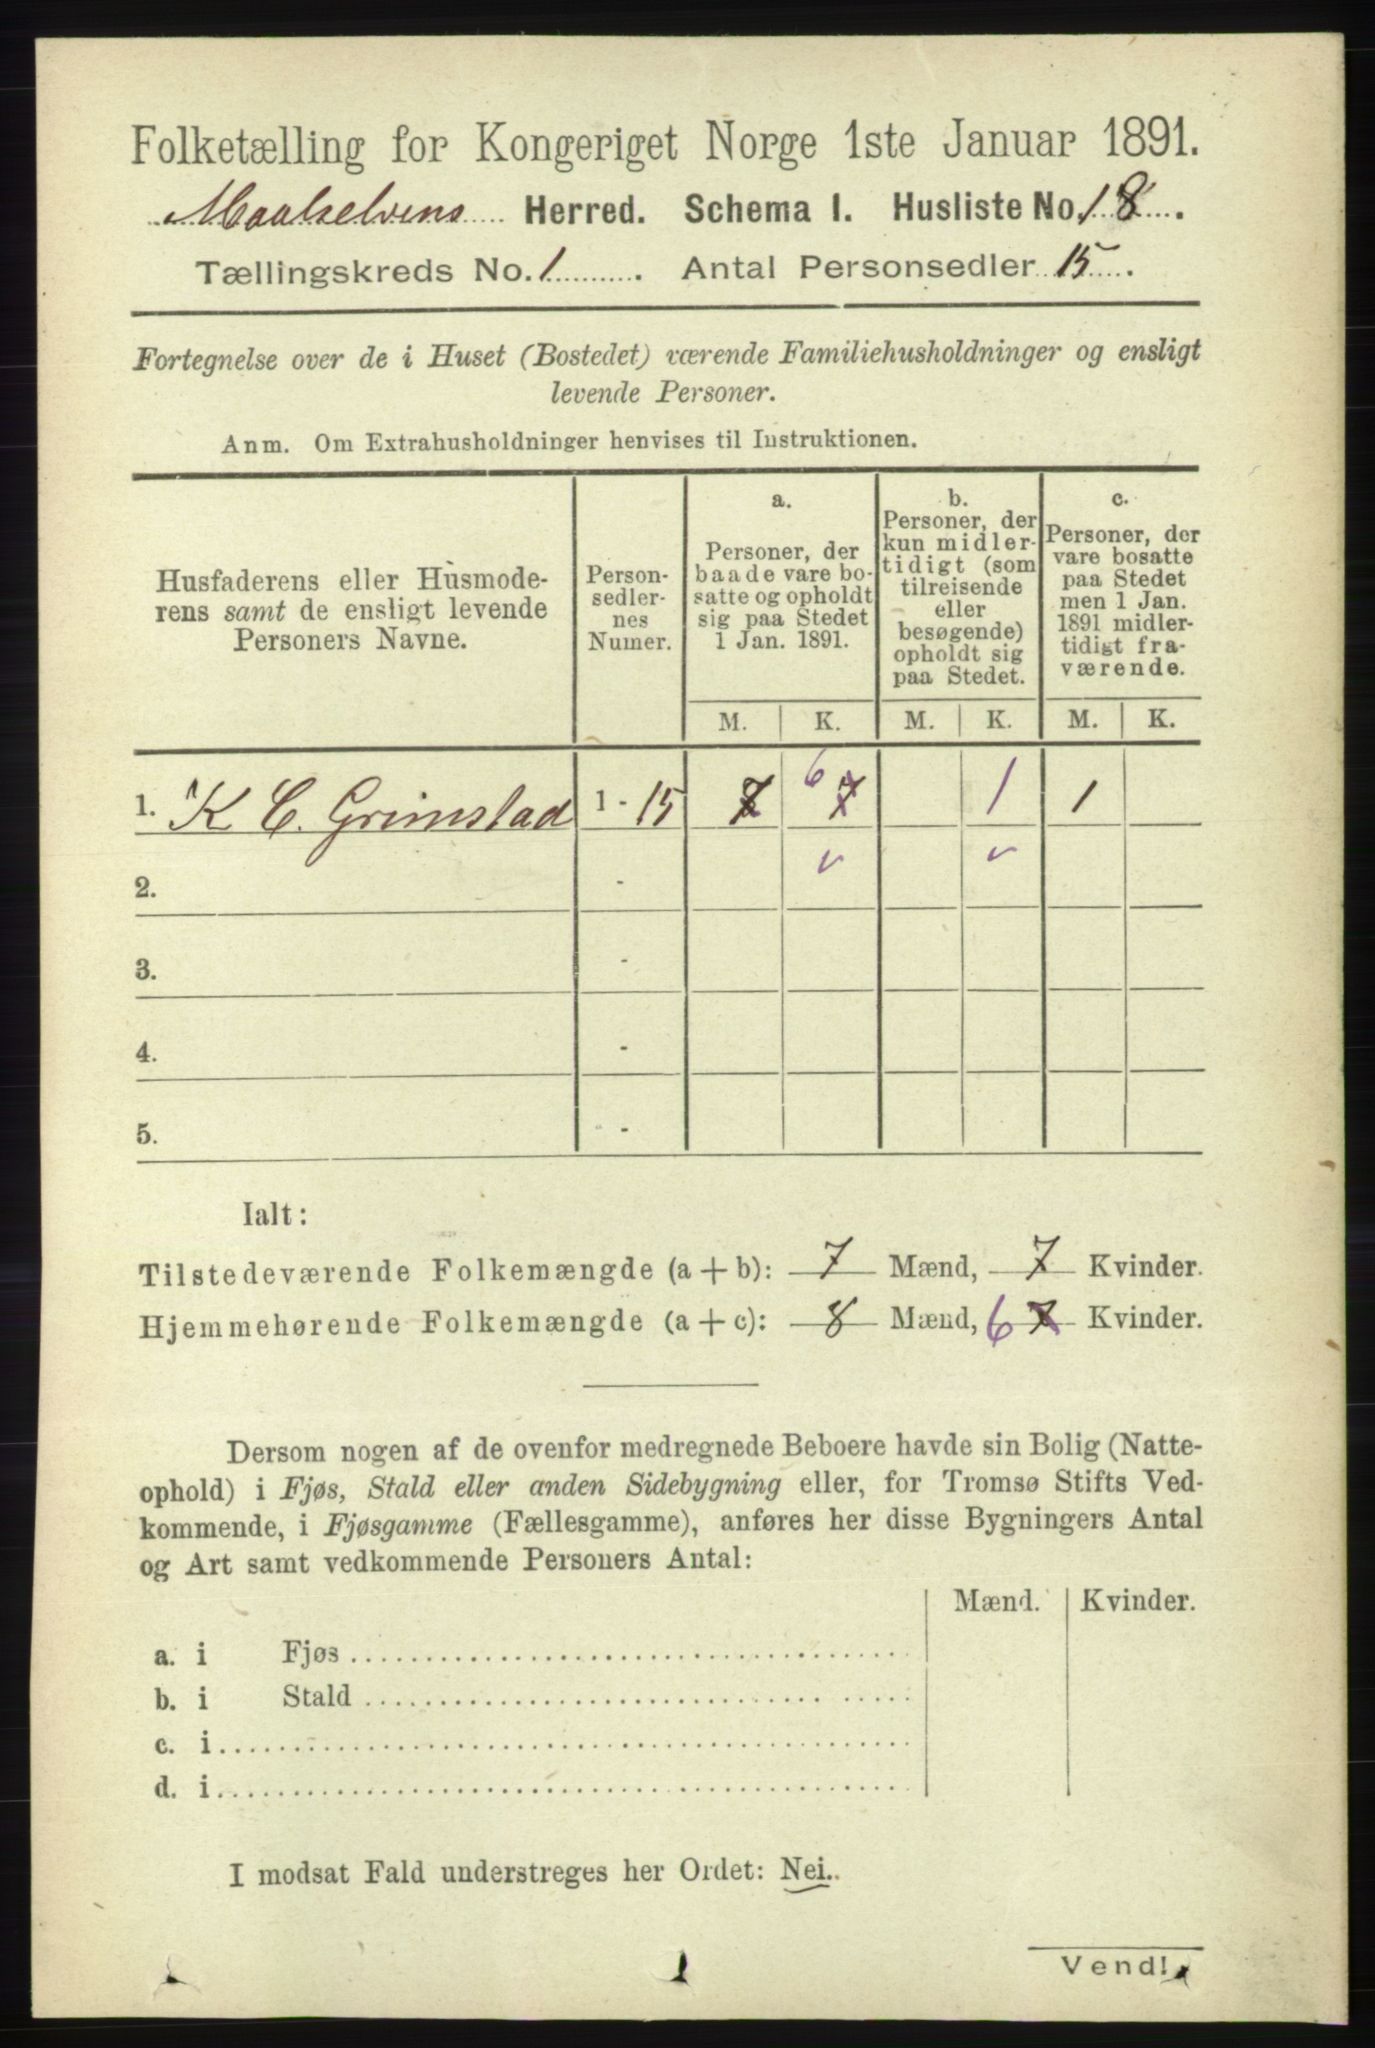 Folketælling for Kongeriget Norge 1ste Januar 1891.
Maalselvens Herred. Schema I. Husliste No. 18.
Tællingskreds No. 1. Antal Personsedler 15.
Fortegnelse over de i Huset (Bostedet) værende Familiehusholdninger og ensligt
levende Personer.
Anm. Om Extrahusholdninger henvises til Instruktionen.
Husfaderens eller Husmode-
rens samt de ensligt levende
Personers Navne.
Person-
sedler-
nes
Numer.
a.
Personer, der
baade vare bo-
satte og opholdt
sig paa Stedet
1 Jan. 1891.
b.
Personer, der
kun midler-
tidigt (som
tilreisende
eller
besøgende)
opholdt sig
paa Stedet.
c.
Personer, der
vare bosatte
paa Stedet
men 1 Jan.
1891 midler-
tidigt fra-
værende.
M. K. M. K. M. K.
1. K C. Grimstad 1 - 15 7 6 7 1 1
2. -
3. -
4. -
5. -
Ialt:
Tilstedeværende Folkemængde (a + b): 7 Mænd, 7 Kvinder.
Hjemmehørende Folkemængde (a + c): 8 Mænd, 6 7 Kvinder.
Dersom nogen af de ovenfor medregnede Beboere havde sin Bolig (Natte-
ophold) i Fjøs, Stald eller anden Sidebygning eller, for Tromsø Stifts Ved-
kommende, i Fjøsgamme (Fællesgamme), anføres her disse Bygningers Antal
og Art samt vedkommende Personers Antal:
Mænd. Kvinder.
a. i Fjøs
b. i Stald
c. i
d. i
I modsat Fald understreges her Ordet: Nei.
Vend!